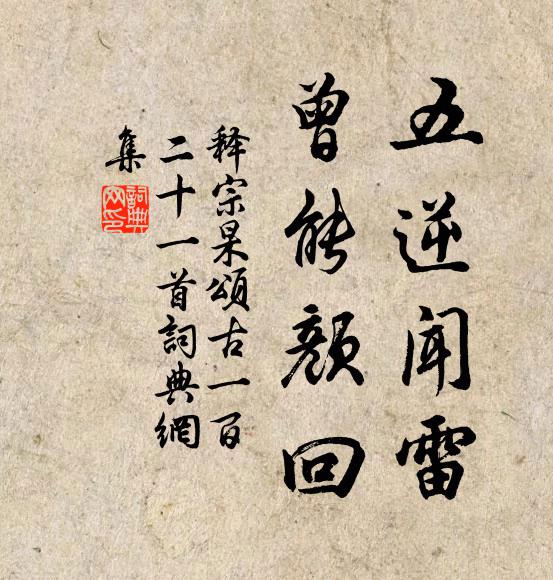 五逆闻雷
曾能颜回
释宗杲颂古一百
二十一首詞典網
集
詞典
网印